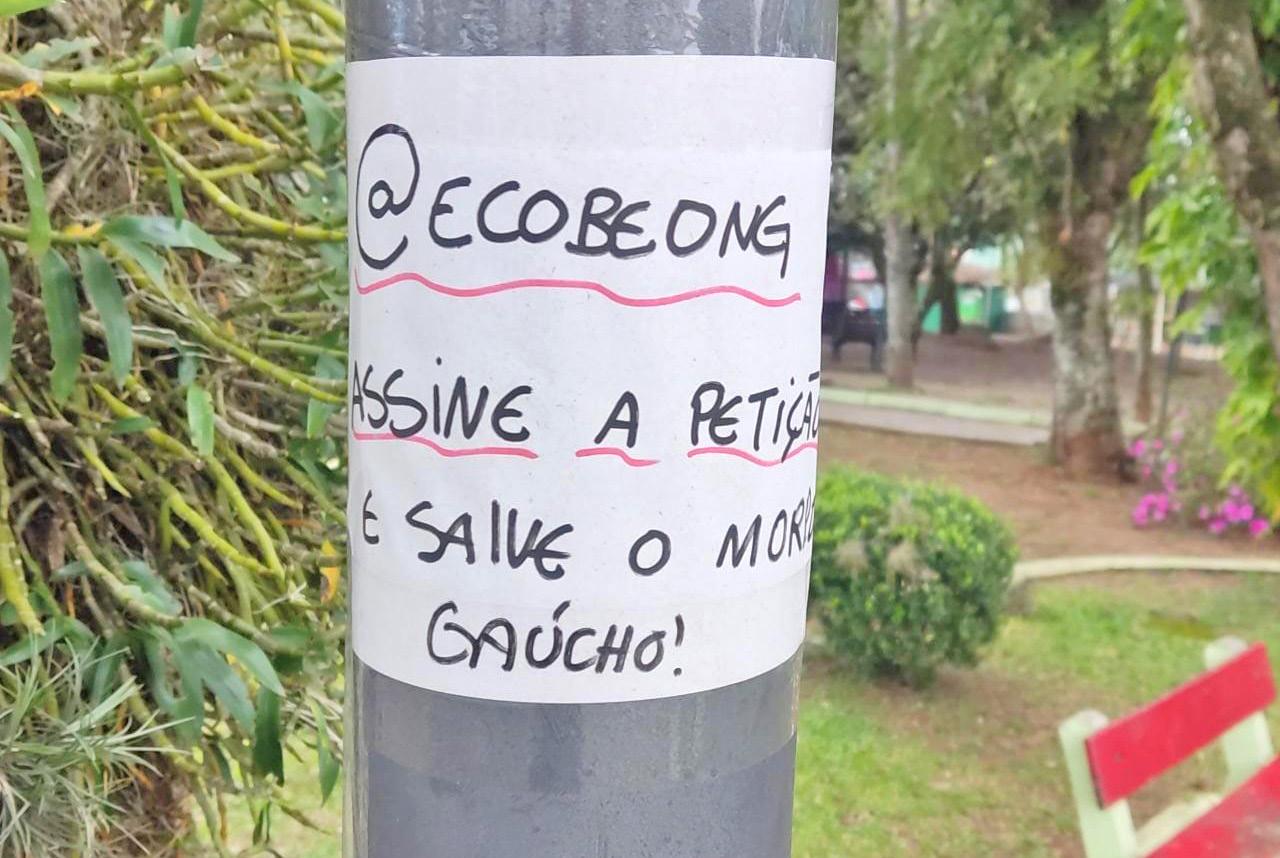 @ECOBEONG
ASSINE A PETIÇÃO
E SALVE O MORRO
GAÚCHO!